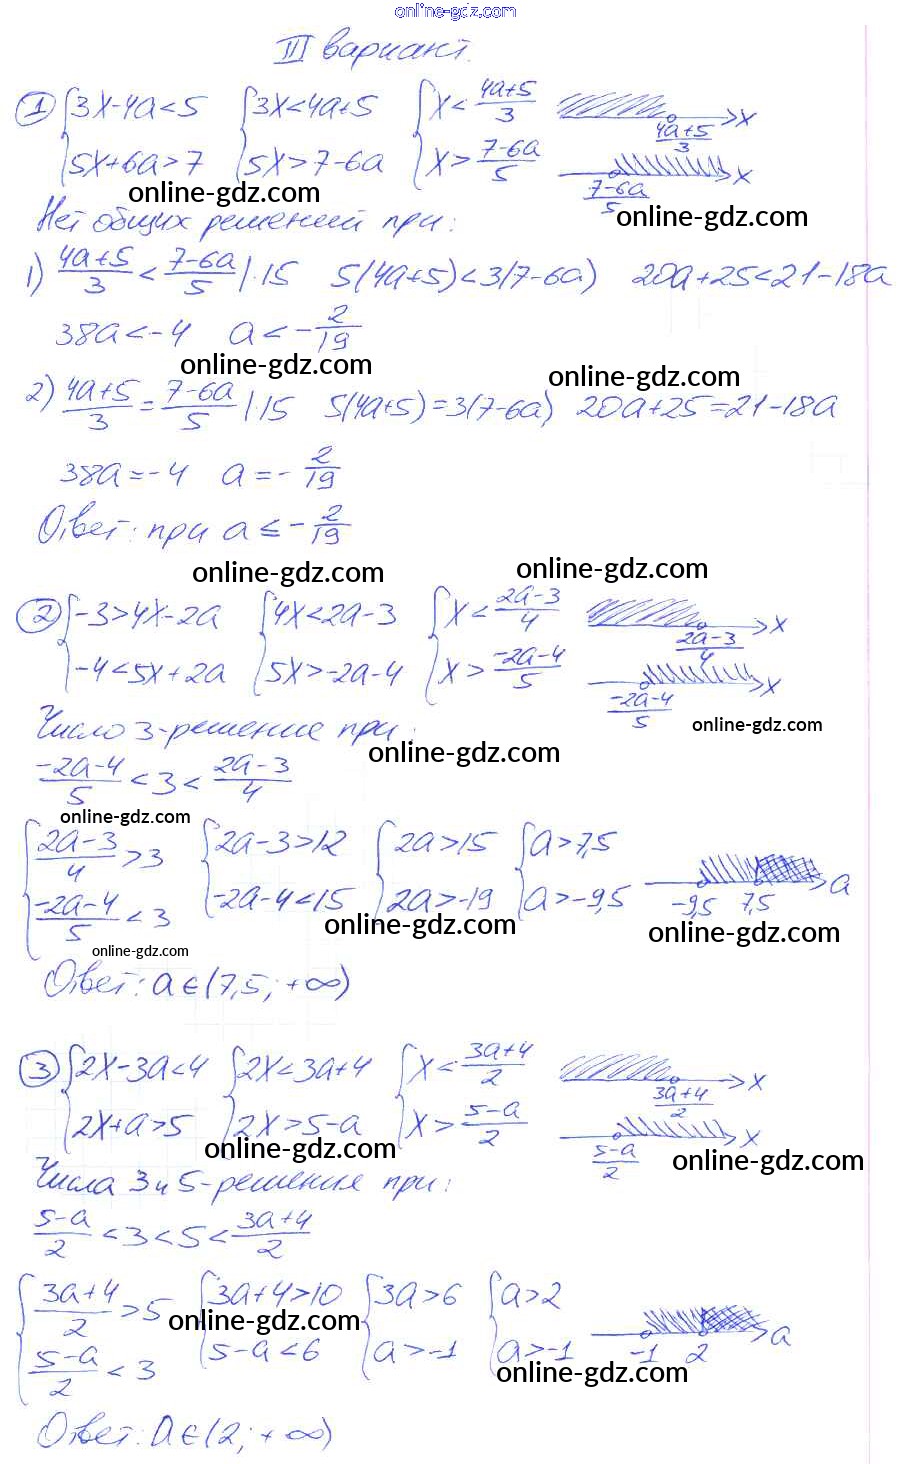 online-gdz.com
III вариант.
① {3x-4a<5 {3x<4a+5 {x<(4a+5)/3 x
(4a+5)/3
{5x+6a>7 {5x>7-6a {x>(7-6a)/5 x
(7-6a)/5
online-gdz.com online-gdz.com
Нет общих решений при:
1) (4a+5)/3<(7-6a)/5 |·15 5(4a+5)<3(7-6a) 20a+25<21-18a
38a<-4 a<-2/19
online-gdz.com online-gdz.com
2) (4a+5)/3=(7-6a)/5 |·15 5(4a+5)=3(7-6a) 20a+25=21-18a
38a=-4 a=-2/19
Ответ: при a≤-2/19
online-gdz.com online-gdz.com
② {-3>4x-2a {4x<2a-3 {x<(2a-3)/4 x
(2a-3)/4
{-4<5x+2a {5x>-2a-4 {x>(-2a-4)/5 x
(-2a-4)/5
online-gdz.com
Число 3-решение при:
online-gdz.com
(-2a-4)/5<3<(2a-3)/4
online-gdz.com
{(2a-3)/4>3 {2a-3>12 {2a>15 {a>7,5 a
{(-2a-4)/5<3 {-2a-4<15 {2a>-19 {a>-9,5 -9,5 7,5
online-gdz.com online-gdz.com
online-gdz.com
Ответ: a∈(7,5; +∞)
③ {2x-3a<4 {2x<3a+4 {x<(3a+4)/2 x
(3a+4)/2
{2x+a>5 {2x>5-a {x>(5-a)/2 x
(5-a)/2
online-gdz.com online-gdz.com
Числа 3 и 5-решение при:
(5-a)/2<3<5<(3a+4)/2
{(3a+4)/2>5 {3a+4>10 {3a>6 {a>2 a
online-gdz.com
{(5-a)/2<3 {5-a<6 {a>-1 {a>-1 -1 2
online-gdz.com
Ответ: a∈(2; +∞)